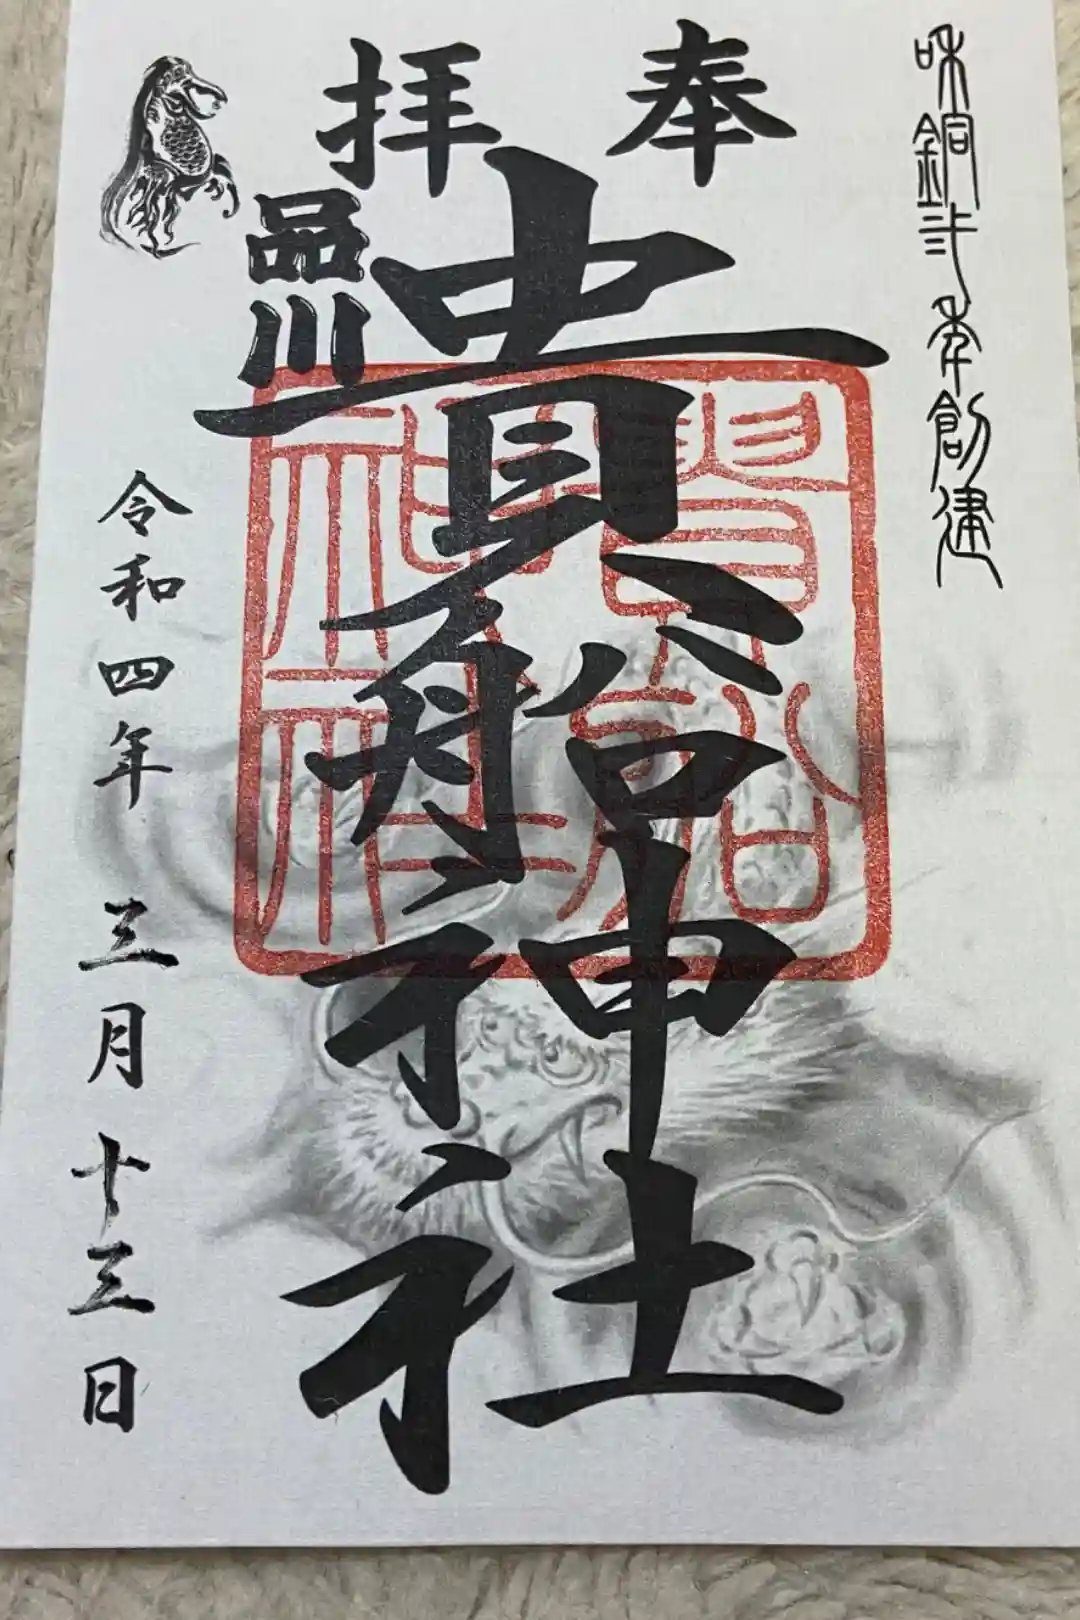 和銅弐年創建
奉拝
品川
貴船神社
貴船神社
令和四年 三月十三日